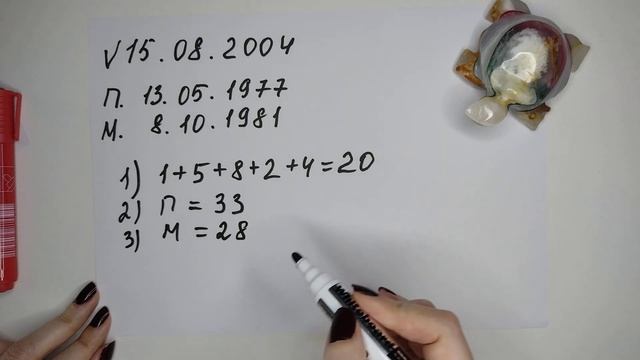 √15.08.2004
П. 13.05.1977
М. 8.10.1981
1) 1+5+8+2+4=20
2) П = 33
3) М = 28